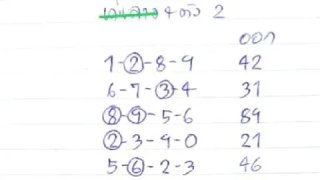 4 ตัว 2
ออก
1-2-8-9 42
6-7-3-4 31
8-9-5-6 89
2-3-9-0 21
5-6-2-3 46